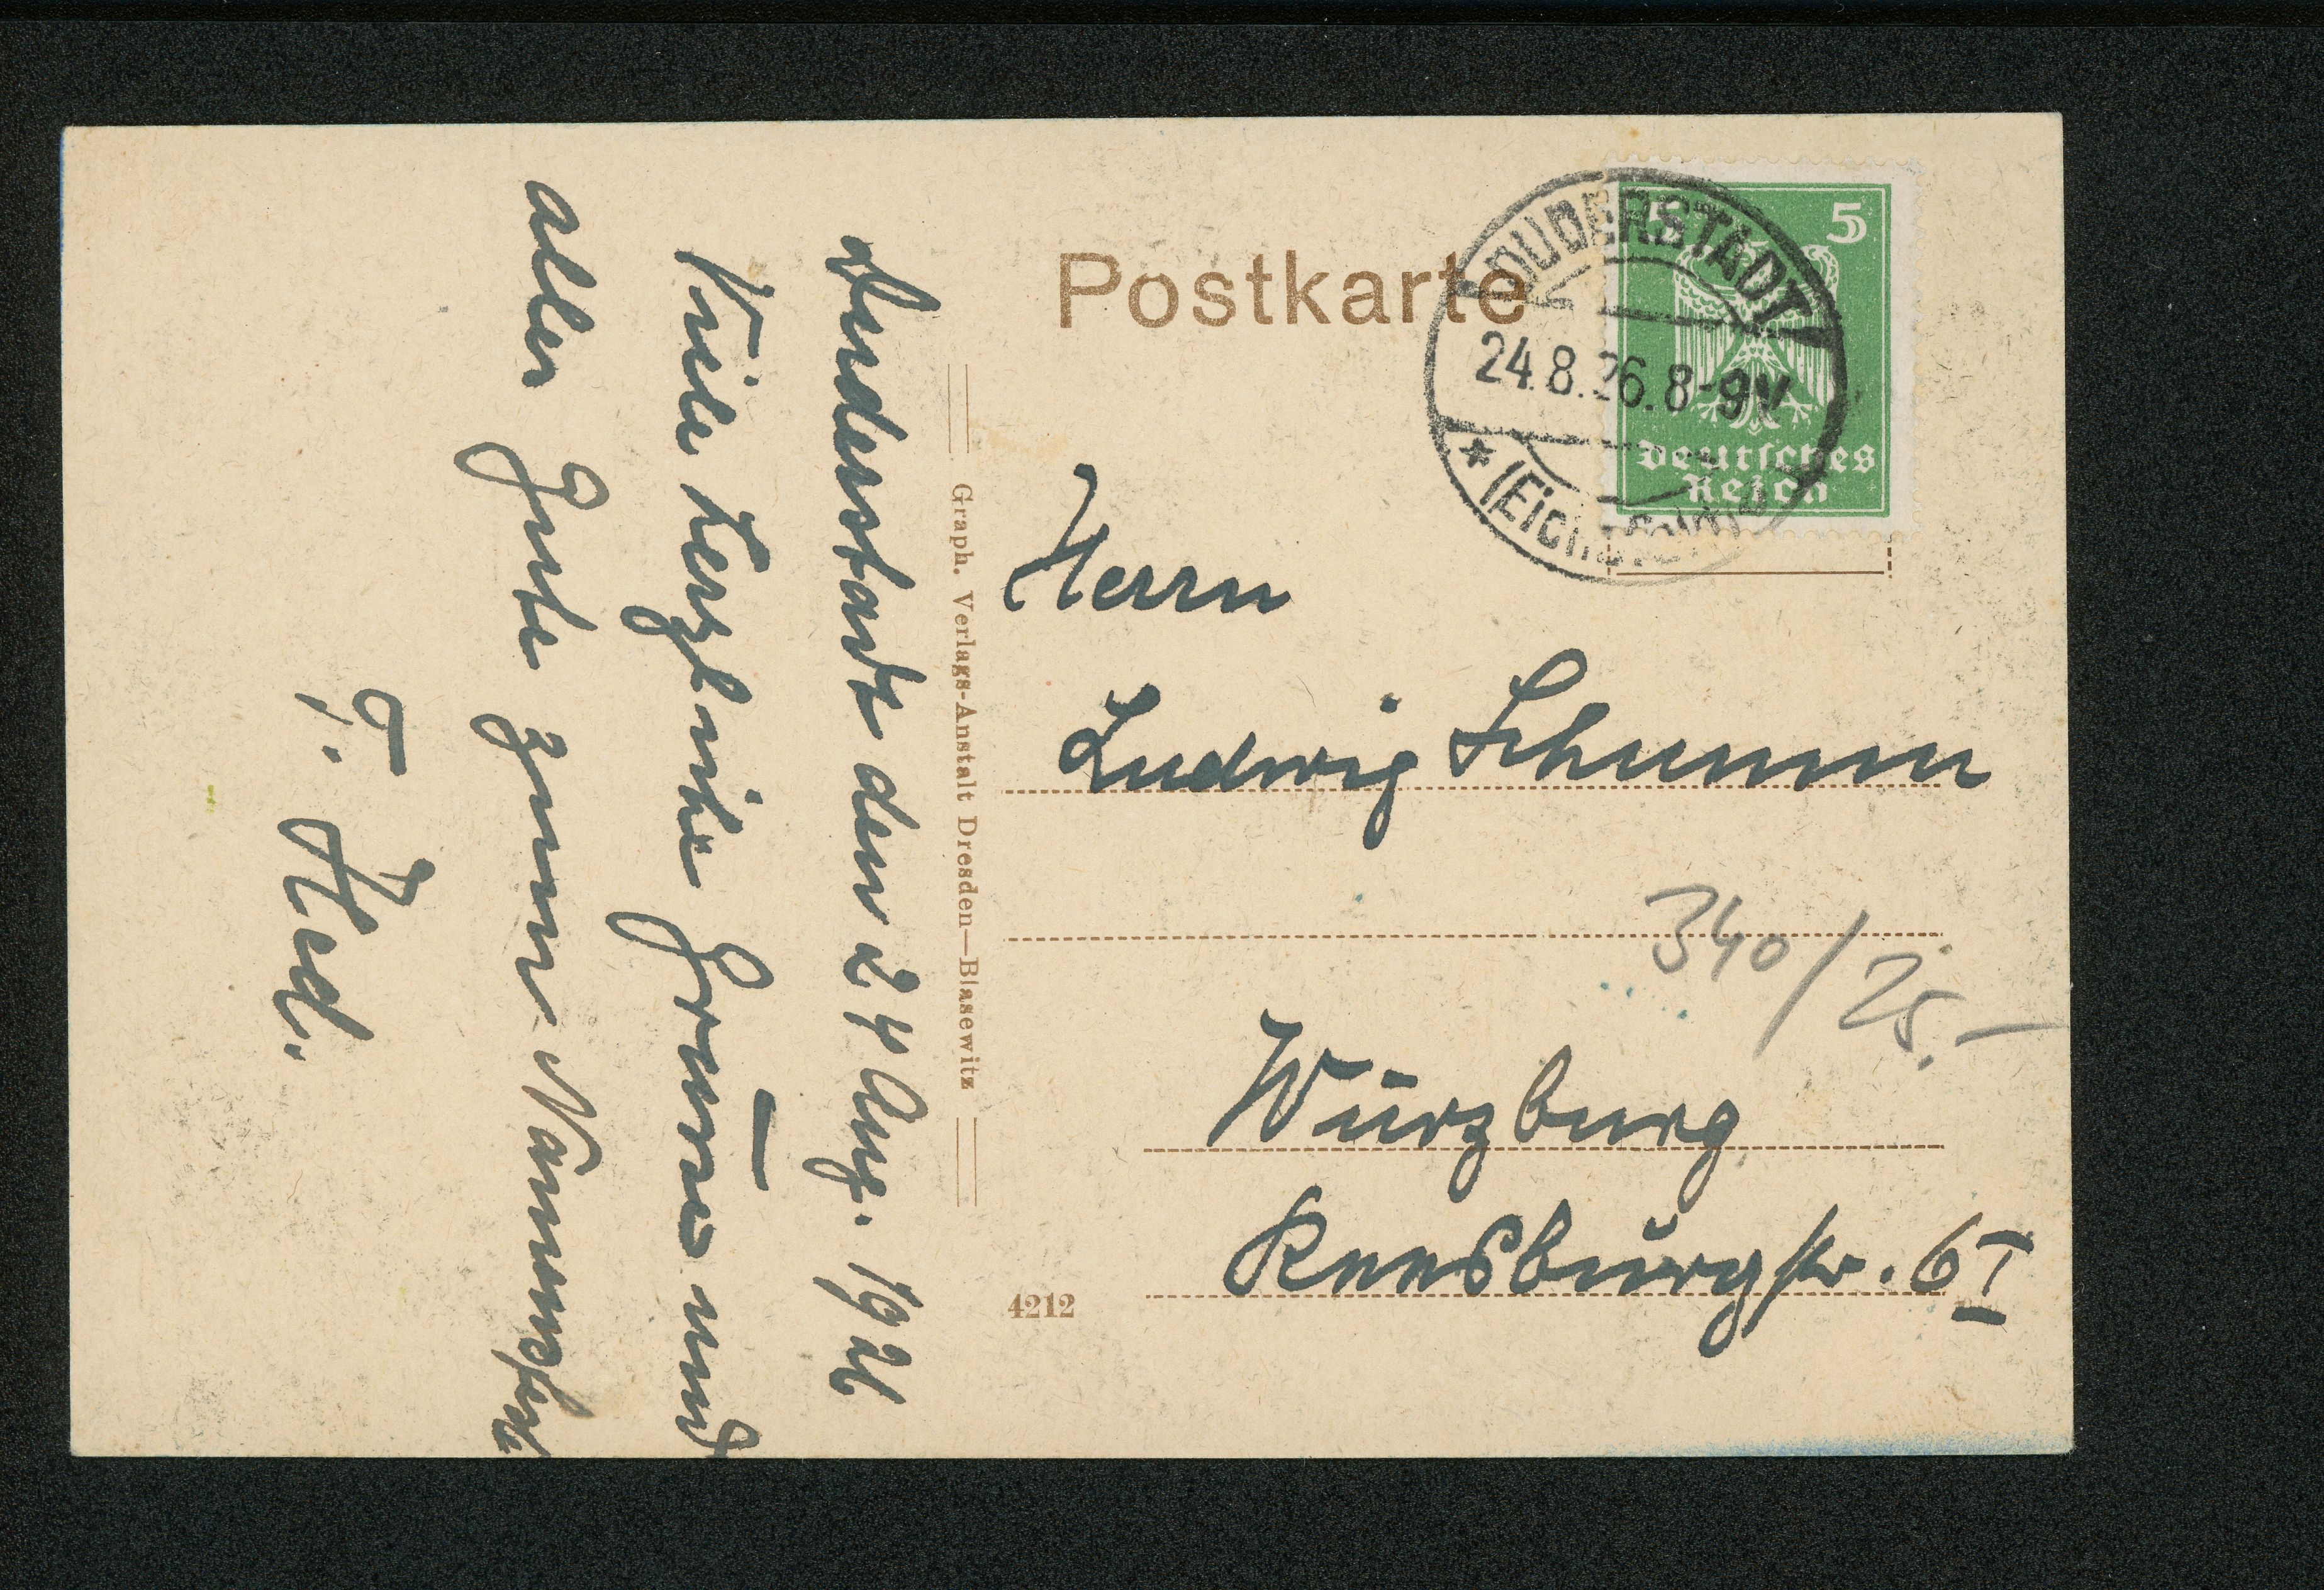 Postkarte
DUDERSTADT
24.8.26.8-9V
* (Eichsfeld)
5 5
Deutsches
Reich
Duderstadt den 24 Aug. 1926
Viele herzliche Grüsse und
alles Gute zum Namensfeste
T. Hed.
Graph. Verlags-Anstalt Dresden—Blasewitz
Herrn
Ludwig Schumm
340/25.-
Würzburg
6 I
4212